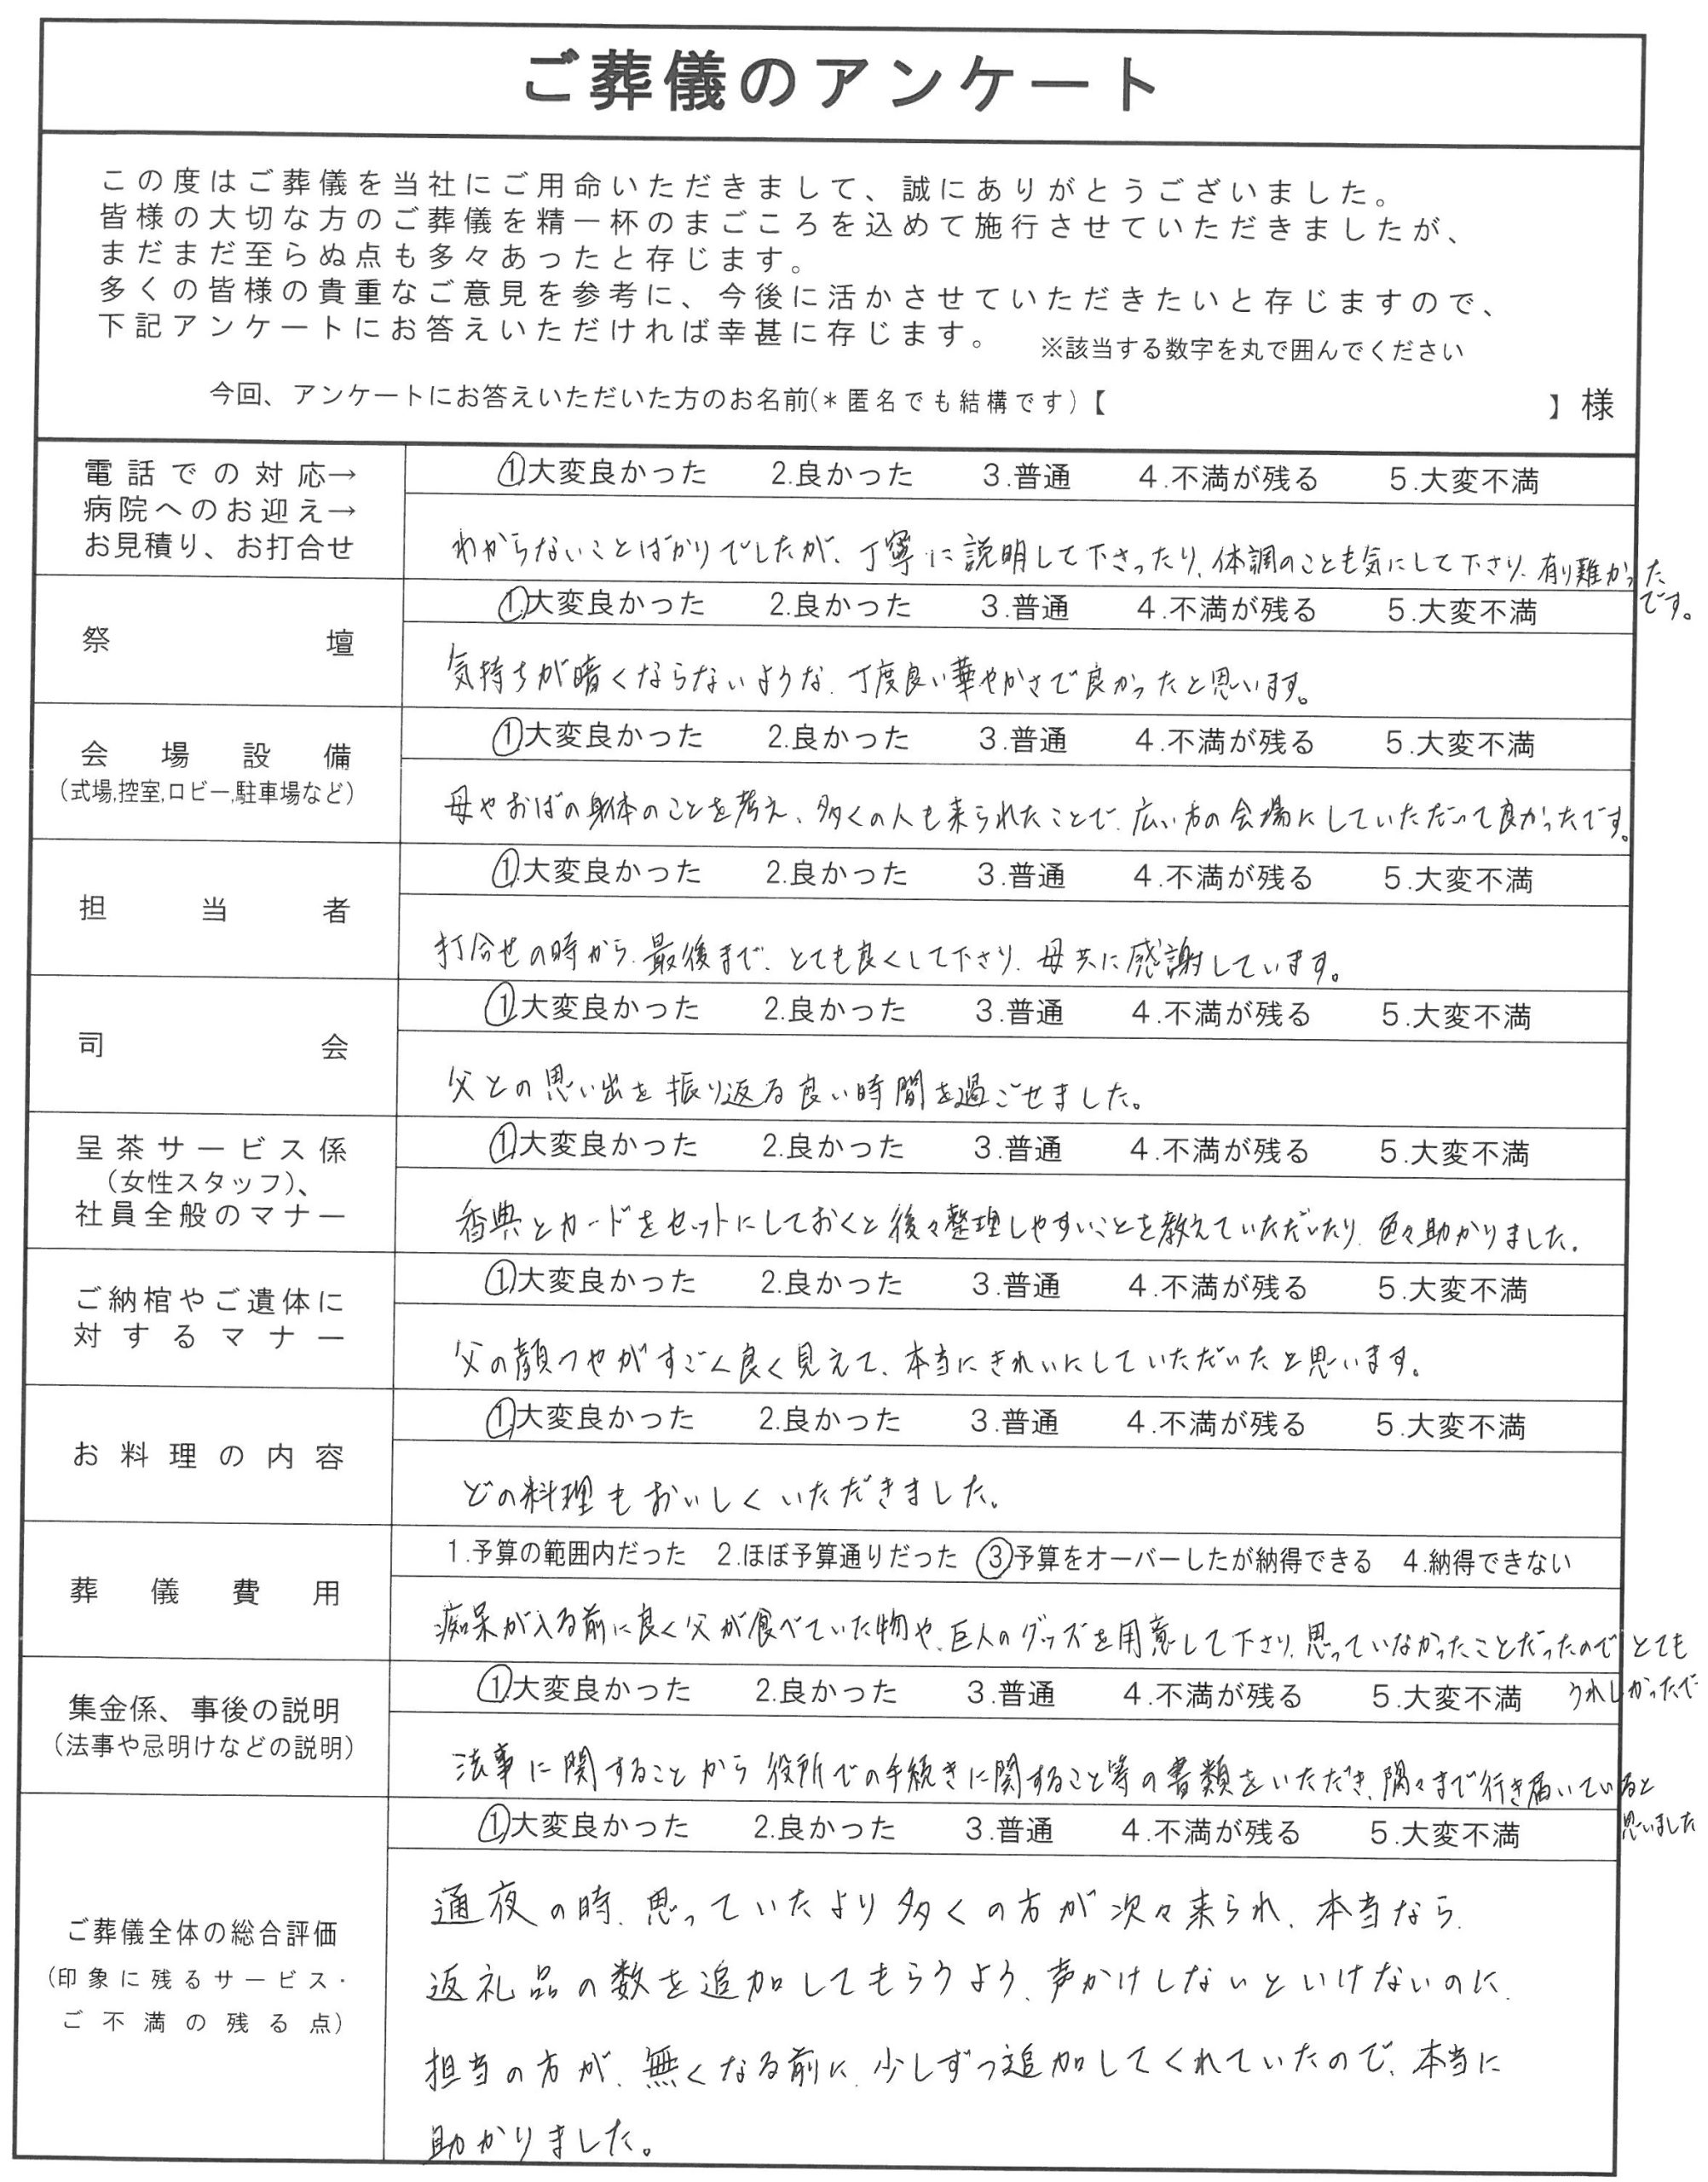 ご葬儀のアンケート
この度はご葬儀を当社にご用命いただきまして、誠にありがとうございました。
皆様の大切な方のご葬儀を精一杯のまごころを込めて施行させていただきましたが、
まだまだ至らぬ点も多々あったと存じます。
多くの皆様の貴重なご意見を参考に、今後に活かさせていただきたいと存じますので、
下記アンケートにお答えいただければ幸甚に存じます。 ※該当する数字を丸で囲んでください
今回、アンケートにお答えいただいた方のお名前(*匿名でも結構です)【 】様
電話での対応→
病院へのお迎え→
お見積り、お打合せ
1.大変良かった 2.良かった 3.普通 4.不満が残る 5.大変不満
わからないことばかりでしたが、丁寧に説明して下さったり、体調のことも気にして下さり、有り難かった
です。
祭壇
1.大変良かった 2.良かった 3.普通 4.不満が残る 5.大変不満
気持ちが暗くならないような、丁度良い華やかさで良かったと思います。
会場設備
(式場,控室,ロビー,駐車場など)
1.大変良かった 2.良かった 3.普通 4.不満が残る 5.大変不満
母やおばの身体のことを考え、多くの人も来られたことで、広い方の会場にしていただいて良かったです。
担当者
1.大変良かった 2.良かった 3.普通 4.不満が残る 5.大変不満
打合せの時から、最後まで、とても良くして下さり、母共に感謝しています。
司会
1.大変良かった 2.良かった 3.普通 4.不満が残る 5.大変不満
父との思い出を振り返る良い時間を過ごせました。
呈茶サービス係
(女性スタッフ)、
社員全般のマナー
1.大変良かった 2.良かった 3.普通 4.不満が残る 5.大変不満
香典とカードをセットにしておくと後々整理しやすいことを教えていただいたり、色々助かりました。
ご納棺やご遺体に
対するマナー
1.大変良かった 2.良かった 3.普通 4.不満が残る 5.大変不満
父の顔つやがすごく良く見えて、本当にきれいにしていただいたと思います。
お料理の内容
1.大変良かった 2.良かった 3.普通 4.不満が残る 5.大変不満
どの料理もおいしくいただきました。
葬儀費用
1.予算の範囲内だった 2.ほぼ予算通りだった 3.予算をオーバーしたが納得できる 4.納得できない
痴呆が入る前に良く父が食べていた物や、巨人のグッズを用意して下さり、思っていなかったことだったのでとても
うれしかったで
集金係、事後の説明
(法事や忌明けなどの説明)
1.大変良かった 2.良かった 3.普通 4.不満が残る 5.大変不満
法事に関することから役所での手続きに関すること等の書類をいただき、隅々まで行き届いていると
思いました
ご葬儀全体の総合評価
(印象に残るサービス・
ご不満の残る点)
1.大変良かった 2.良かった 3.普通 4.不満が残る 5.大変不満
通夜の時、思っていたより多くの方が次々来られ、本当なら、
返礼品の数を追加してもらうよう、声かけしないといけないのに、
担当の方が、無くなる前に、少しずつ追加してくれていたので、本当に
助かりました。